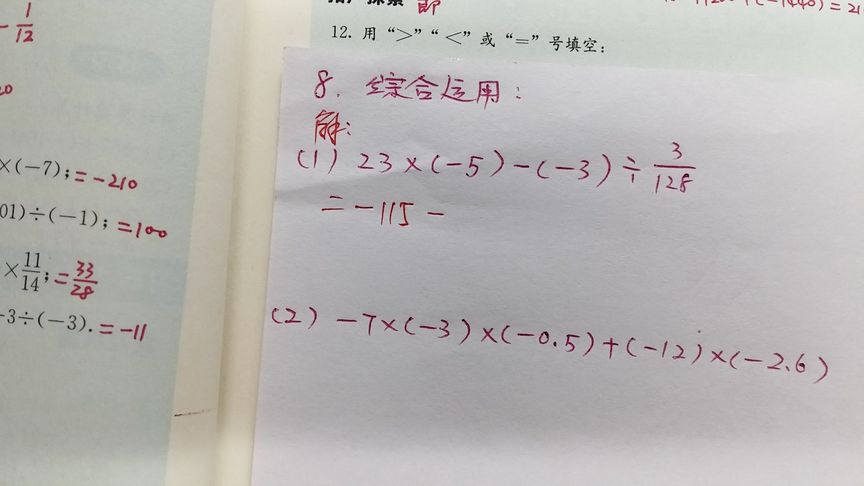 -1/12
×(-7); =-210
01)÷(-1); =100
×11/14; =33/28
-3÷(-3). =-11
12. 用“>”“<”或“=”号填空:
8. 综合运用:
解:
(1) 23×(-5)-(-3)÷3/128
=-115-
(2) -7×(-3)×(-0.5)+(-12)×(-2.6)